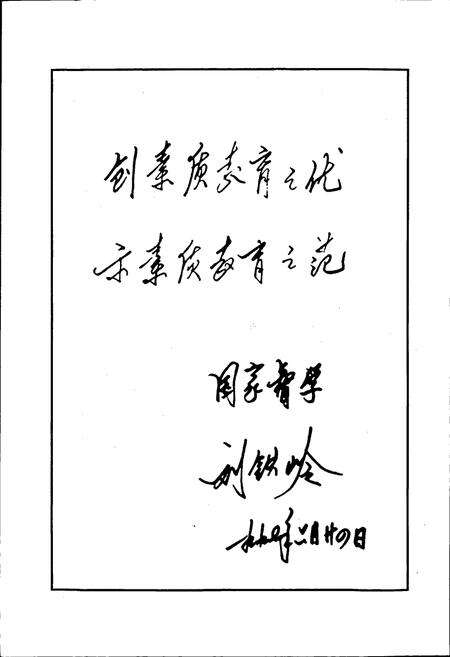 创素质教育之优
示素质教育之范
国家督学
刘铁岭
一九九七年六月廿四日